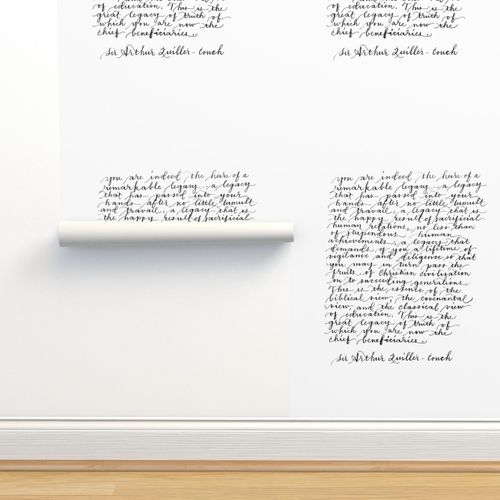 of education. This is the
great legacy of truth of
which you are now the
chief beneficiaries.
Sir Arthur Quiller-Couch
of education. This is the
great legacy of truth of
which you are now the
chief beneficiaries.
Sir Arthur Quiller-Couch
you are indeed, the heirs of a
remarkable legacy - a legacy
that has passed into your
hands after no little tumult
and travail, a legacy that is
the happy result of sacrificial
you are indeed, the heirs of a
remarkable legacy - a legacy
that has passed into your
hands after no little tumult
and travail, a legacy that is
the happy result of sacrificial
human relations, no less than
of stupendous human
achievements, a legacy that
demands of you a lifetime of
vigilance and diligence so that
you may in turn pass the
fruits of Christian civilization
on to succeeding generations.
This is the essence of the
biblical view, the covenantal
view, and the classical view
of education. This is the
great legacy of truth of
which you are now the
chief beneficiaries.
Sir Arthur Quiller-Couch